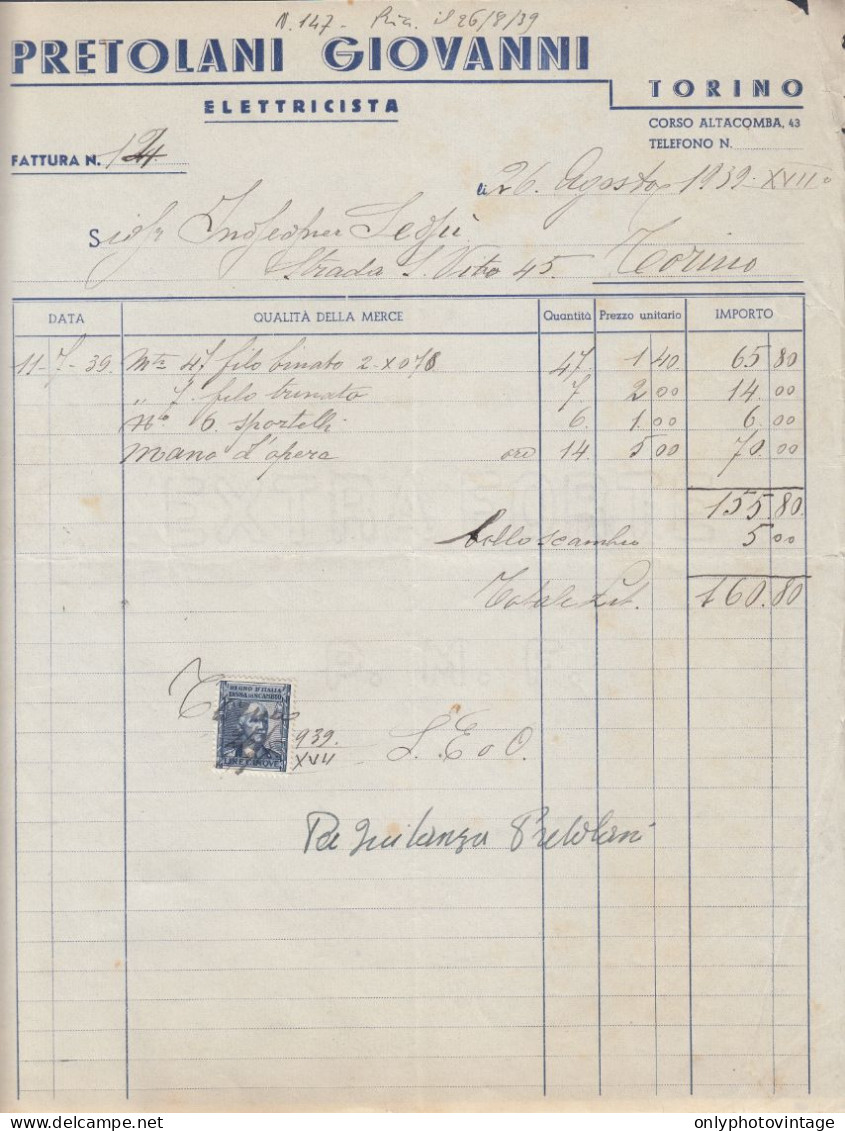 N. 147 - Ric. il 26/8/39
PRETOLANI GIOVANNI
TORINO
ELETTRICISTA
CORSO ALTACOMBA, 43
TELEFONO N.
FATTURA N. 124
li 26. Agosto 1939. XVII°
Sigr Ingegner
Strada S. Vito 45. Torino
DATA QUALITÀ DELLA MERCE Quantità Prezzo unitario IMPORTO
11-7-39. Mtr 47 filo binato 2 x 0 7/8 47. 1 40. 65 80
" 7. filo trinato 7 2 00 14. 00
No 6. sportelli 6. 1.00 6. 00
Mano d'opera ore 14. 5 00 70. 00
EXTRA STRONG
155.80.
bollo scambio 5 00
Totale Lit. 160.80
REGNO D'ITALIA
TASSA SCAMBIO
939.
XVII
LIRE CINQUE
S. E. o O.
Per Quitanza Pretolani
onlyphotovintage